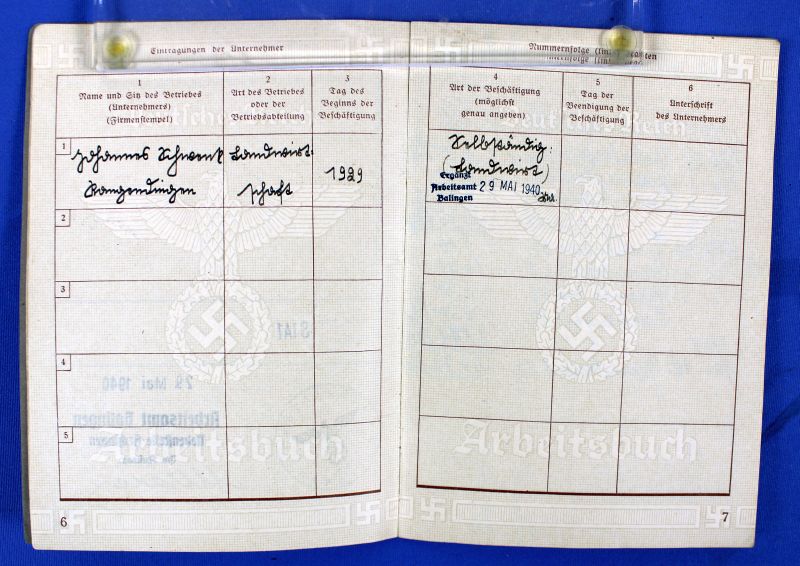 Eintragungen der Unternehmer
1
Name und Sitz des Betriebes
(Unternehmers)
(Firmenstempel)
2
Art des Betriebes
oder der
Betriebsabteilung
3
Tag des
Beginns der
Beschäftigung
1
Johannes Schwenk
Rangendingen
Landwirt
schaft
1929
2
3
4
5
S141
29 Mai 1940
Arbeitsamt Balingen
Arbeitsbuch
6
Nummernfolge
4
Art der Beschäftigung
(möglichst
genau angeben)
5
Tag der
Beendigung der
Beschäftigung
6
Unterschrift
des Unternehmers
Deutsches Reich
Selbständig.
(Landwirt)
Ergänzt
Arbeitsamt 29 MAI 1940
Balingen
Arbeitsbuch
7